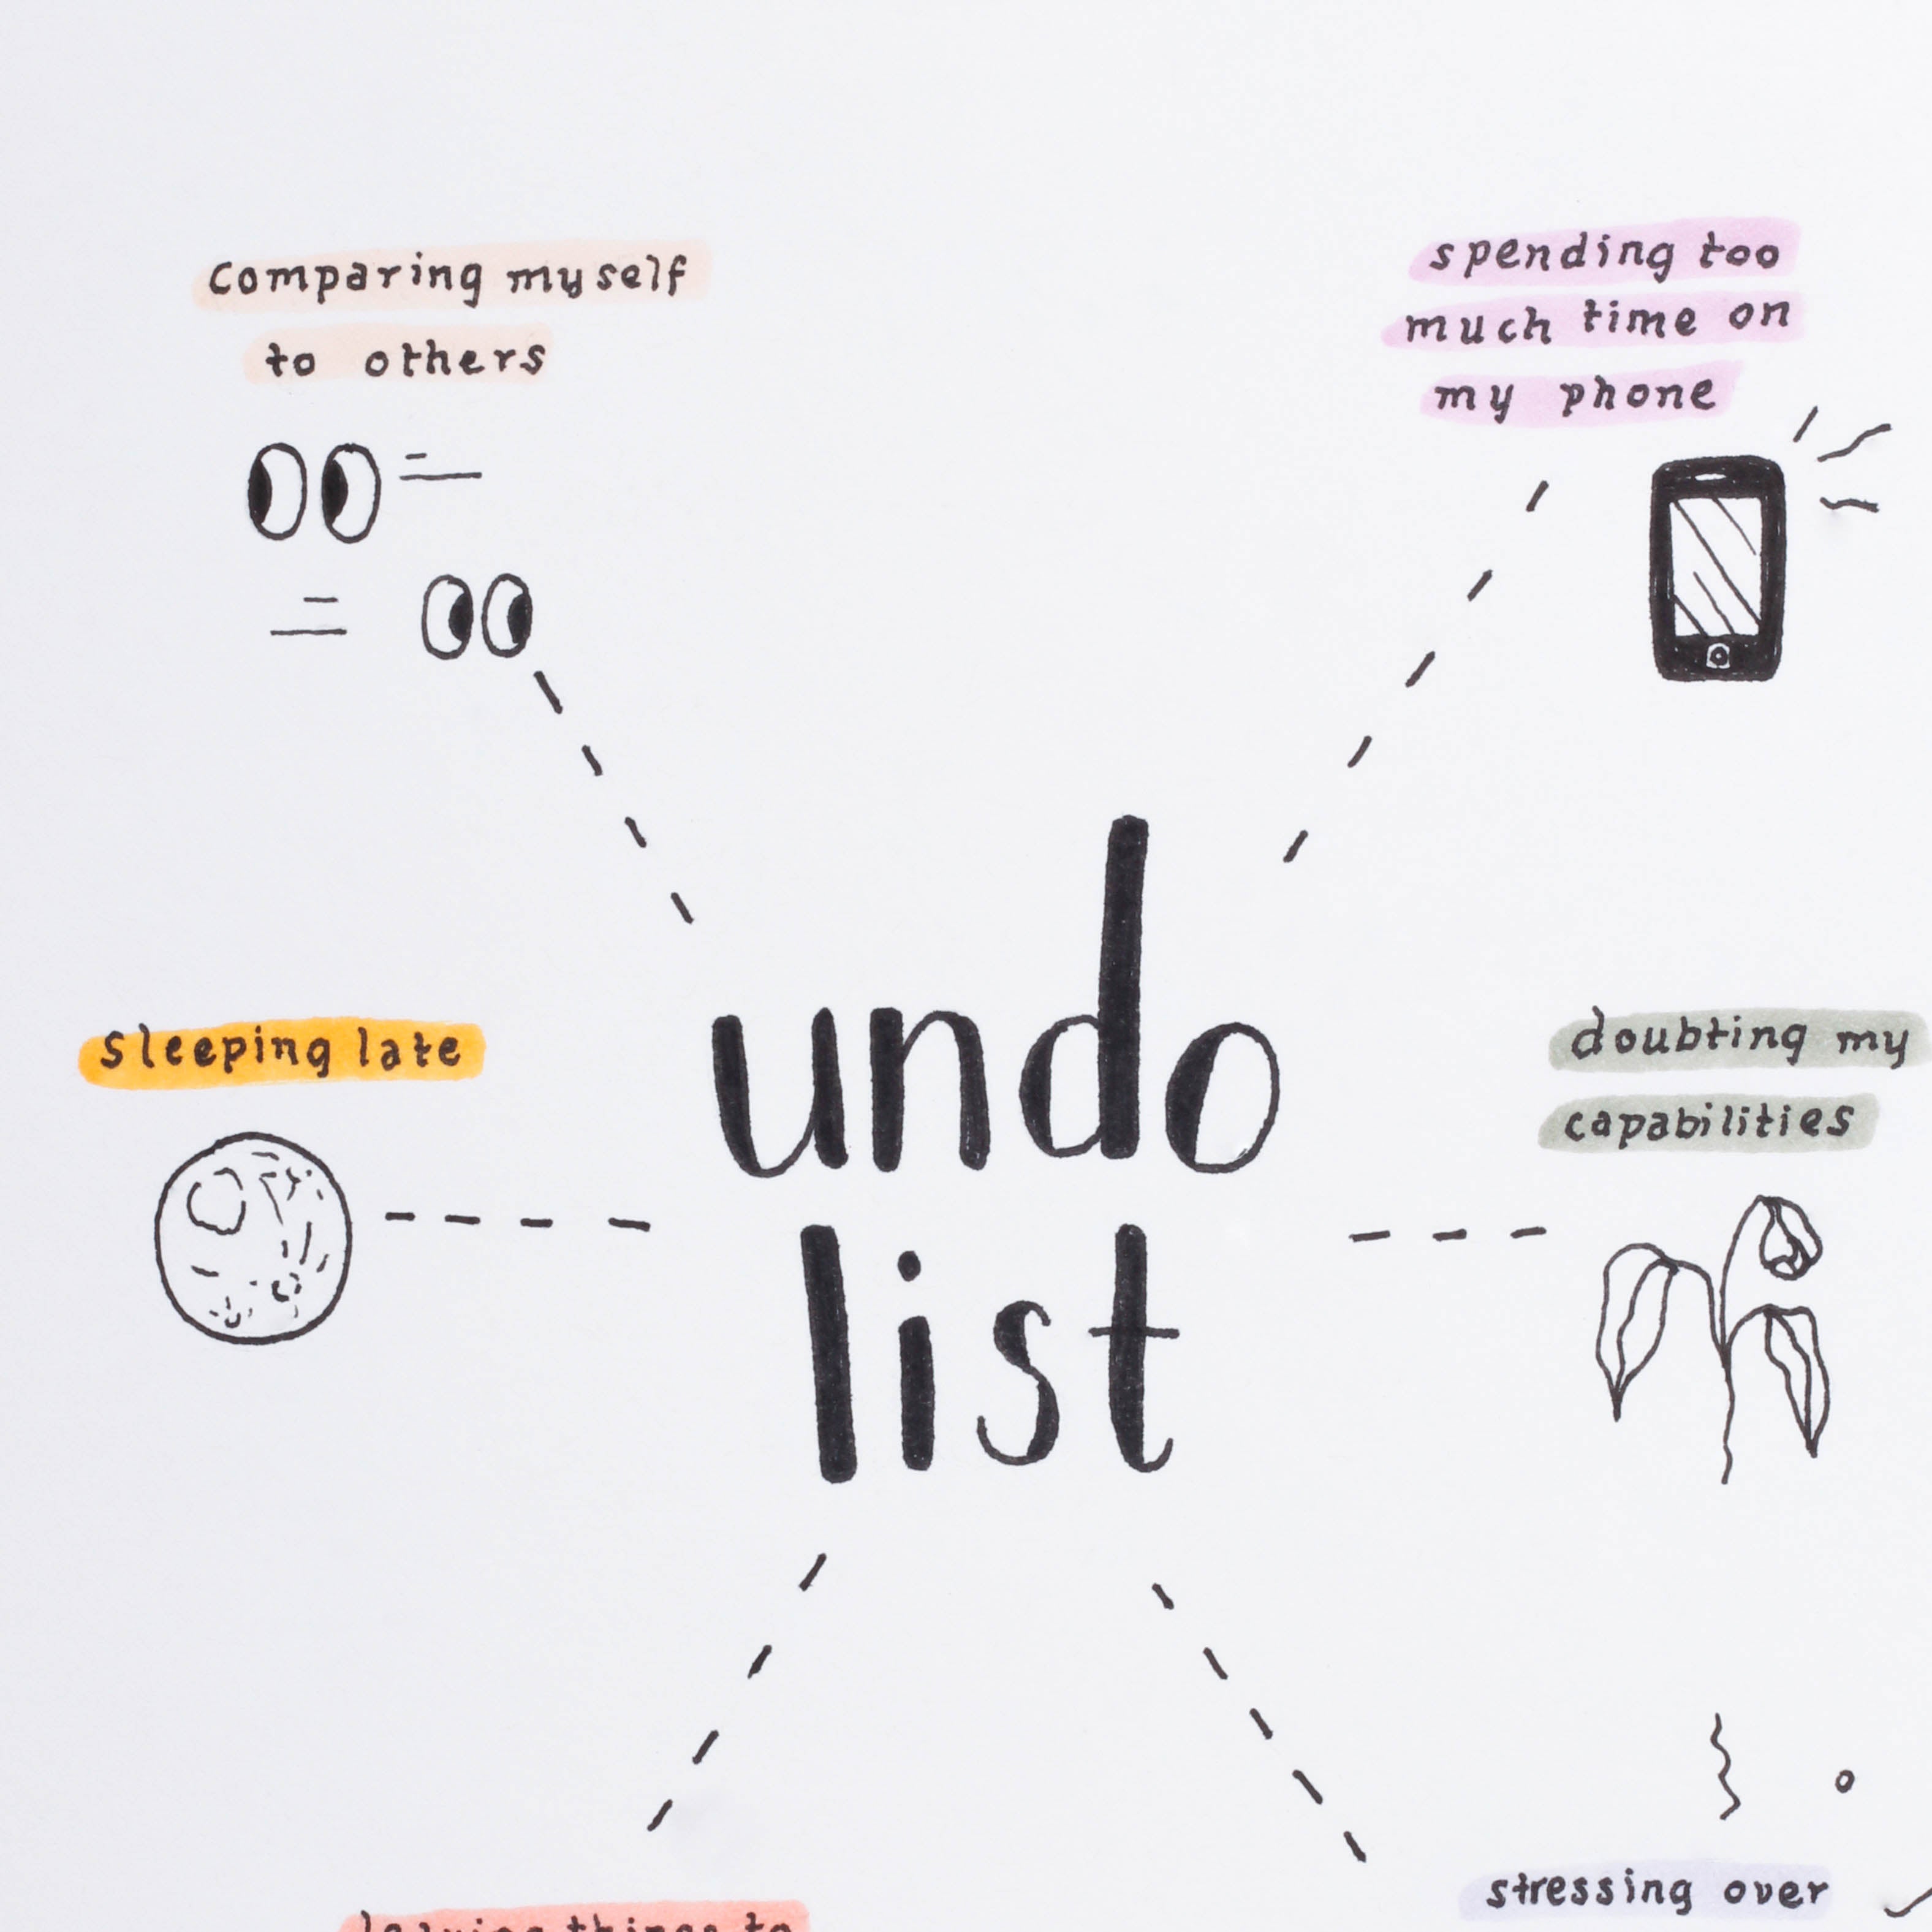 comparing myself
to others
spending too
much time on
my phone
undo
list
sleeping late
doubting my
capabilities
stressing over
leaving things to